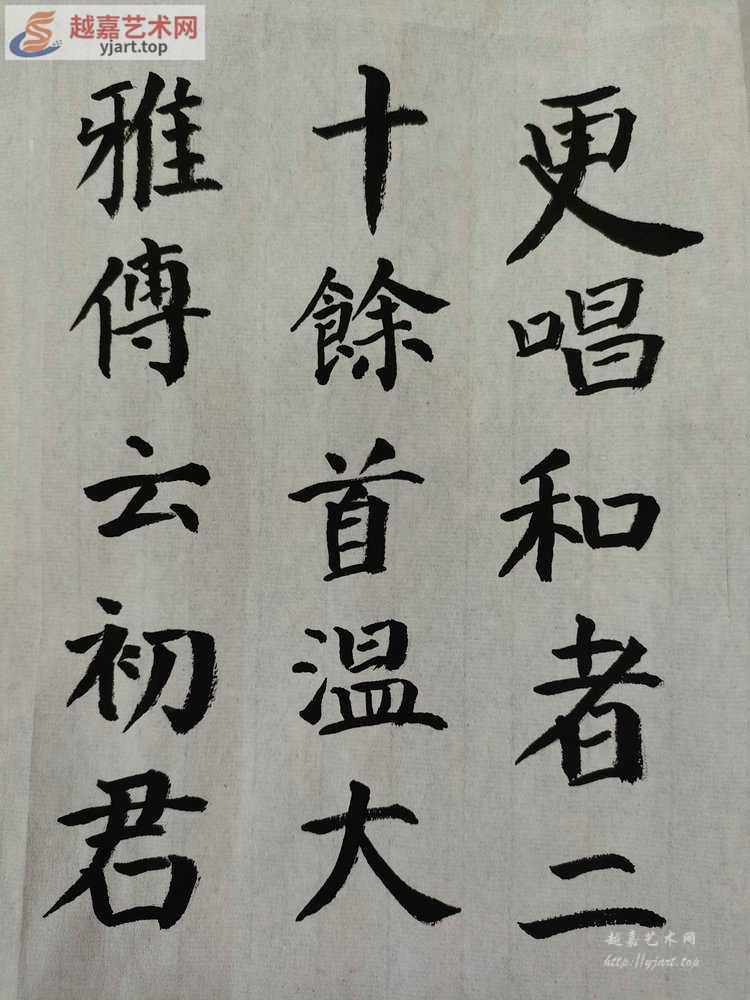 越嘉艺术网
yjart.top
更唱和者二
十餘首温大
雅傳云初君
越嘉艺术网
http://yjart.top